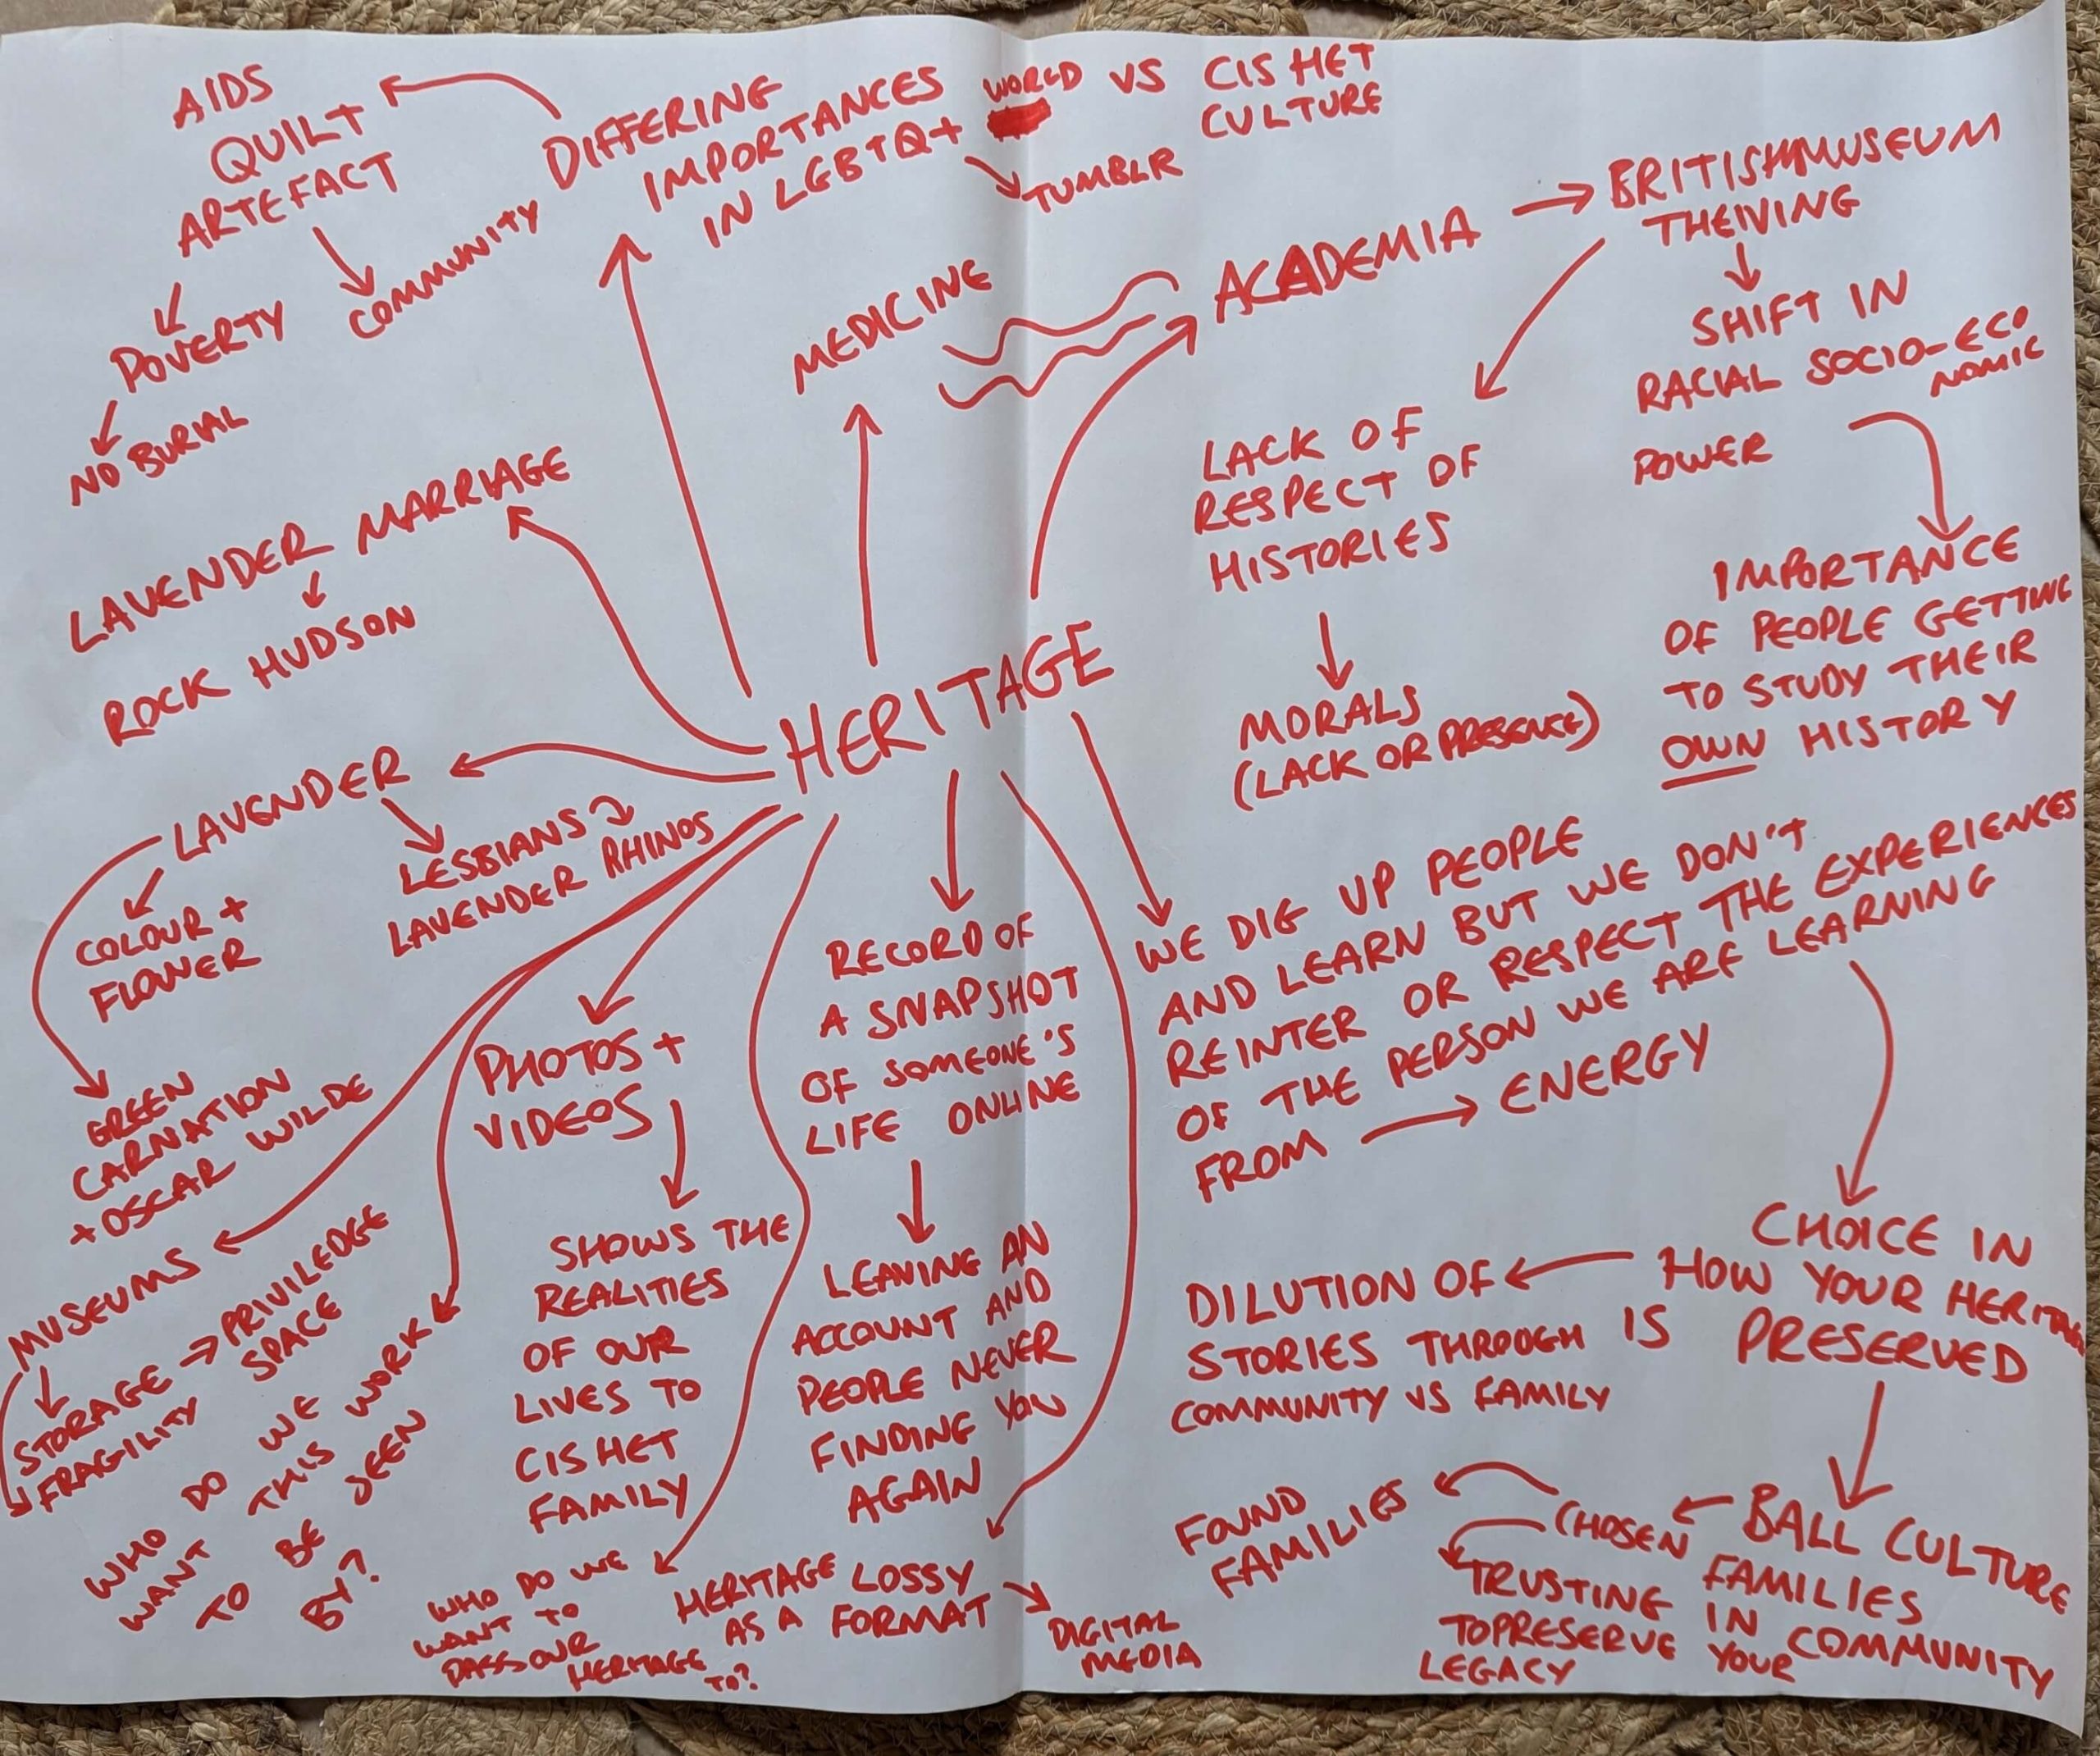 AIDS
QUILT
ARTEFACT
COMMUNITY
POVERTY
NO BURIAL
DIFFERING
IMPORTANCES
IN LGBTQ+ WORLD VS CISHET
CULTURE
TUMBLR
MEDICINE
ACADEMIA
BRITISH MUSEUM
THEIVING
SHIFT IN
RACIAL SOCIO-ECO
NOMIC
POWER
LACK OF
RESPECT OF
HISTORIES
MORALS
(LACK OR PRESENCE)
IMPORTANCE
OF PEOPLE GETTING
TO STUDY THEIR
OWN HISTORY
LAVENDER MARRIAGE
ROCK HUDSON
HERITAGE
LAVENDER
LESBIANS
LAVENDER RHINOS
COLOUR +
FLOWER
GREEN
CARNATION
+ OSCAR WILDE
MUSEUMS
STORAGE → PRIVILEDGE
SPACE
FRAGILITY
WHO DO WE
WANT THIS WORK
TO BE SEEN
BY?
PHOTOS +
VIDEOS
SHOWS THE
REALITIES
OF OUR
LIVES TO
CISHET
FAMILY
WHO DO WE
WANT TO
PASS OUR
HERITAGE
TO?
RECORD OF
A SNAPSHOT
OF SOMEONE'S
LIFE ONLINE
LEAVING AN
ACCOUNT AND
PEOPLE NEVER
FINDING YOU
AGAIN
HERITAGE LOSSY
AS A FORMAT
DIGITAL
MEDIA
WE DIG UP PEOPLE
AND LEARN BUT WE DON'T
REINTER OR RESPECT THE EXPERIENCES
OF THE PERSON WE ARE LEARNING
FROM → ENERGY
CHOICE IN
HOW YOUR HERITAGE
IS PRESERVED
DILUTION OF
STORIES THROUGH
COMMUNITY VS FAMILY
BALL CULTURE
CHOSEN
FAMILIES
IN COMMUNITY
FOUND
FAMILIES
TRUSTING
TO PRESERVE YOUR
LEGACY